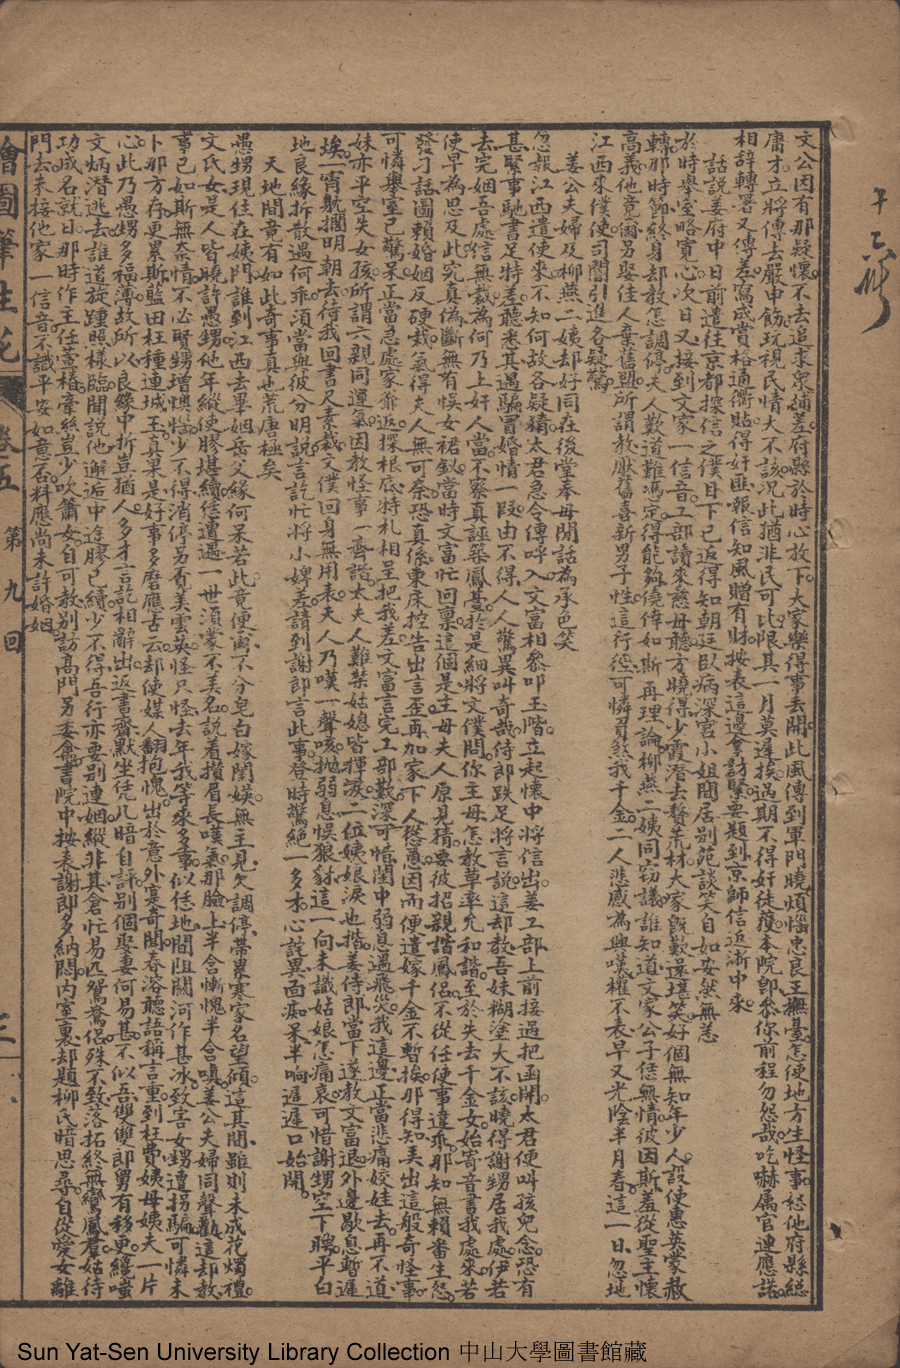 文公因有那疑懷不去追求京捕差府縣於時心放下大家樂得事丟開此風傳到軍門曉煩惱忠良王撫臺怎使地方生怪事怒他府縣總
庸才立將傳去嚴申飭玩視民情大不該況此猶非民可比限其一月莫遲挨過期不得奸徒獲本院即參你前程勿然哉吃嚇屬官連應諾
相辭轉署又傳差寫成賞格通衢貼得奸匪報信知風贈有財按表這邊拿訪緊要題到京師信返浙中來
話說姜府中日前遣往京都探信之僕目下已返得知朝廷臥病深宮小姐閒居別苑談笑自如安然無恙
於時舉室略寬心次日又接到文家一信音工部讀來慈母聽方曉得少霞潛去贅荒材大家既歎還堪笑好個無知年少人設使惠英蒙赦
轉那時節終身却教怎調停夫人歎道難憑定得能夠僥倖如斯再理論柳燕二姨同竊議誰知道文家公子恁無情彼因斯羞從聖主懷
高義他竟爾另娶佳人棄舊盟所謂教厭舊喜新男子性這行徑可憐習煞我千金二人悲感為興嘆權不表早又光陰半月春這一日忽地
江西來僕使司閽引進各疑驚
姜公夫婦及柳燕二姨却好同在後堂奉母閒話為承色笑
忽報江西遣使來不知何故各疑猜太君急令傳呼入文富相參叩玉階立起懷中將信出姜工部上前接過把函開太君便叫孩兒念恐有
甚緊事馳書足特差聽悉其遇騙冒婚情一段由不得人人驚異叫奇哉侍郎跌足將言說這却教吾妹糊塗大不該曉得謝甥居我處伊若
去完姻吾處信無裁為何乃上奸人當不察真誣築鳳臺於是細將文僕問你主母怎教草率允和諧至於失去千金女始寄音書我處來若
使早為思及此究真偽斷無有悞女裙釵當時文富忙回稟這個是主母夫人原見猜要彼招親諧鳳侶不從任使事違乖那知無賴畨生怒
發刁話圖賴婚姻反硬栽氣得夫人無可奈恐真係東床控告出言歪再加家下人慫恿因而便遣嫁千金不暫挨那得知弄出這般奇怪事
可憐舉室已驚呆正當急處家爺返探根底特札相呈把我差文富言完工部歎深可惜閨中弱息遇飛災我這邊正當悲痛姣娃去再不道
妹亦平空失女孩所謂六親同運氣因教怪事一齊諧太夫人難禁姑媳皆揮淚二位姨娘淚也揩姜侍郎當下遂教文富退外邊歇息暫遲
挨一宵躭擱明朝去待我回書尺素裁文僕回身無用表夫人乃嘆一聲咳拋弱息悞狠豺這一向未識姑娘怎痛哀可惜謝甥空下聘平白
地良緣拆散過何乖須當與彼分明說言訖忙將小婢差請到謝郎言此事登時驚絕一多才心訝異面痴呆半晌遲遲口始開
天地間竟有如此奇事真也荒唐極矣
愚甥現住在姨門誰到江西去畢姻岳父緣何呆若此竟便鹵不分皂白嫁閨媖無主見欠調停帶累寒家名望傾這其間雖則未成花燭禮
文氏女是人皆曉許愚甥他年縱使膠堪續恁遭遇一世須蒙不美名說着攢眉長嘆氣那臉上半含慚愧半含嗔姜公夫婦同聲勸這却教
事已如斯無奈情不必賢甥增懊惱少不得消停另覓美雲英怪只怪去年我等來多事似恁地間阻關河作甚冰致害女甥遭拐騙可憐未
卜那方存更累斯藍田枉種連城玉真果是好事多磨應舌云却使媒人翻抱愧出於意外寔奇聞春溶聽語稱言重到枉費姨母姨夫一片
心此乃愚甥多福薄故所以良緣中折豈猶人多才言訖相辭出返書齋默坐凭几暗自評別個娶妻何易甚不似吾雙雙郎舅有移更纔嗤
文炳潛逃去誰道旋踵照樣臨聞說他邂逅中途膠已續少不得吾行亦要別連姻縱非其倉忙易匹鴛鴦侶殊不致落拓終無鸞鳳羣姑待
功成名就日那時作主任萱椿牽絲豈少吹簫女自可教別訪高門另委禽書院中按表謝郎多納悶內室裏却題柳氏暗思尋自從愛女離
門去未接他家一信音不識平安如意否料應尚未許婚姻
繪圖筆生花
卷五
第九回
三
Sun Yat-Sen University Library Collection 中山大學圖書館藏